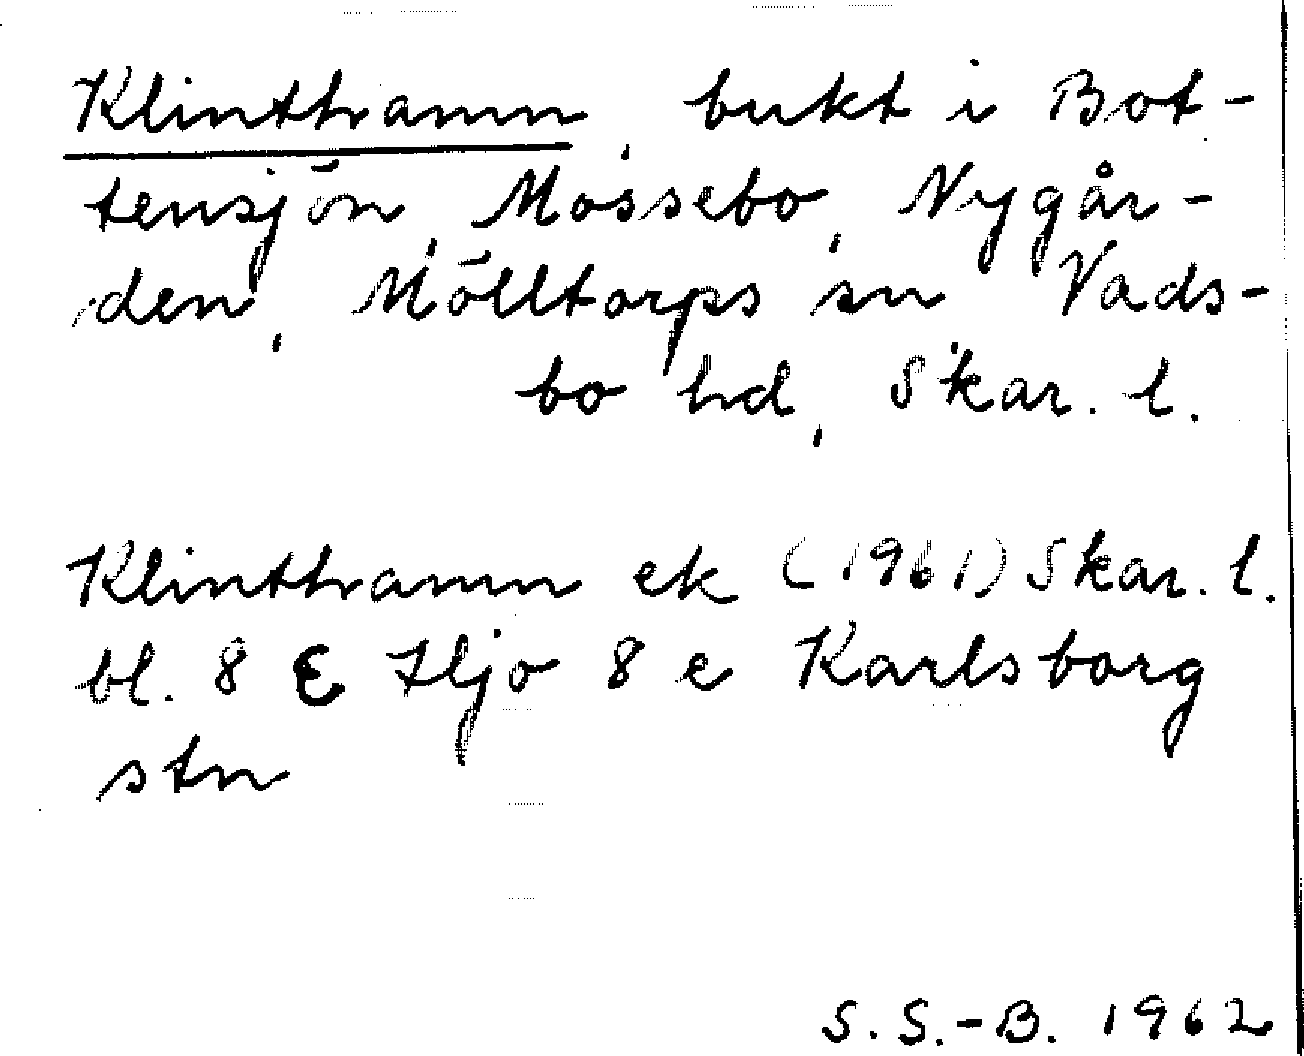 Klinthamn, bukt i Bot-
tensjön, Mossebo, Nygår-
den, Mölltorps sn Vads-
bo hd, Skar. l.
Klinthamn ek (1961) Skar. l.
bl. 8 E Hjo 8 e Karlsborg
stn
S. S.-B. 1962